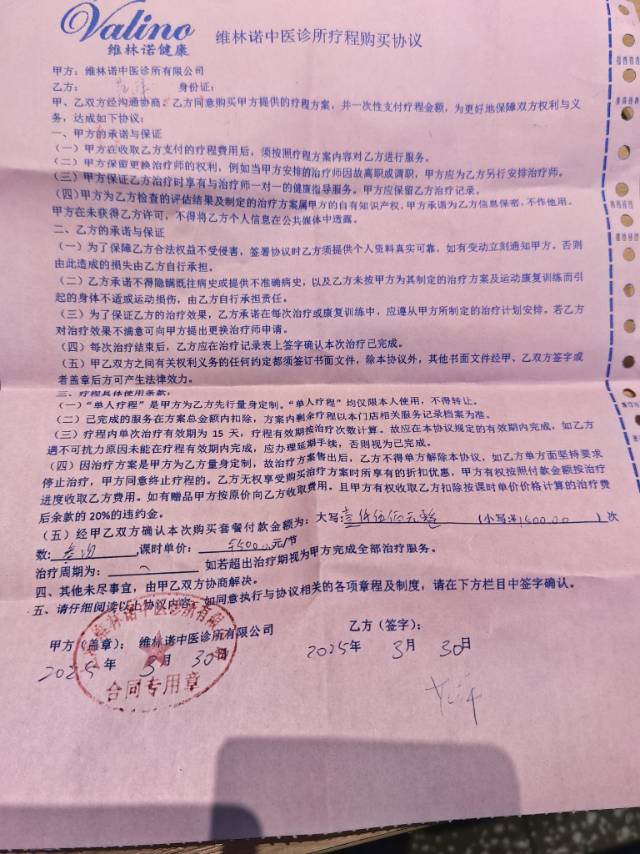 Valino
维林诺健康
维林诺中医诊所疗程购买协议
甲方：维林诺中医诊所有限公司
乙方： 身份证：
甲、乙双方经沟通协商，乙方同意购买甲方提供的疗程方案，并一次性支付疗程金额，为更好地保障双方权利与义
务，达成如下协议：
一、甲方的承诺与保证
（一）甲方在收取乙方支付的疗程费用后，须按照疗程方案内容对乙方进行服务。
（二）甲方保留更换治疗师的权利，例如当甲方安排的治疗师因故离职或调职，甲方应为乙方另行安排治疗师。
（三）甲方保证乙方治疗时享有与治疗师一对一的健康指导服务。甲方应保留乙方治疗记录。
（四）甲方为乙方检查的评估结果及制定的治疗方案属甲方的自有知识产权，甲方承诺为乙方信息保密，不作他用。
甲方在未获得乙方许可，不得将乙方个人信息在公共媒体中透露。
二、乙方的承诺与保证
（一）为了保障乙方合法权益不受侵害，签署协议时乙方须提供个人资料真实可靠，如有变动立刻通知甲方。否则
由此造成的损失由乙方自行承担。
（二）乙方承诺不得隐瞒既往病史或提供不准确病史，以及乙方未按甲方为其制定的治疗方案及运动康复训练而引
起的身体不适或运动损伤，由乙方自行承担责任。
（三）为了保证乙方的治疗效果，乙方承诺在每次治疗或康复训练中，应遵从甲方所制定的治疗计划安排。若乙方
对治疗效果不满意可向甲方提出更换治疗师申请。
（四）每次治疗结束后，乙方应在治疗记录表上签字确认本次治疗已完成。
（五）甲乙双方之间有关权利义务的任何约定都须签订书面文件，除本协议外，其他书面文件经甲、乙双方签字或
者盖章后方可产生法律效力。
三、疗程具体使用条款：
（一）“单人疗程”是甲方为乙方先行量身定制。“单人疗程”均仅限本人使用，不得转让。
（二）已完成的服务在方案总金额内扣除，方案内剩余疗程以本门店相关服务记录档案为准。
（三）疗程内单次治疗有效期为 15 天，疗程有效期按治疗次数计算。故应在本协议规定的有效期内完成，如乙方
遇不可抗力原因未能在疗程有效期内完成，应办理延期手续，否则视为已完成。
（四）因治疗方案是甲方为乙方量身定制，故治疗方案售出后，乙方不得单方解除本协议，如乙方单方面坚持要求
停止治疗，甲方同意终止疗程的。乙方无权享受购买治疗方案时所享有的折扣优惠，甲方有权按照付款金额按治疗
进度收取乙方费用。如有赠品甲方按原价向乙方收取费用。且甲方有权收取乙方扣除按课时单价价格计算的治疗费
后余款的 20%的违约金。
（五）经甲乙双方确认本次购买套餐付款金额为：大写： （小写： ）次
数： ,课时单价： 元/节
治疗周期为： 如若超出治疗期视为甲方完成全部治疗服务。
四、其他未尽事宜，由甲乙双方协商解决。
五、请仔细阅读以上协议内容，如同意执行与协议相关的各项章程及制度，请在下方栏目中签字确认。
甲方（盖章）： 维林诺中医诊所有限公司 乙方（签字）：
2025年 3月 30日 2025年 3月 30日
合同专用章